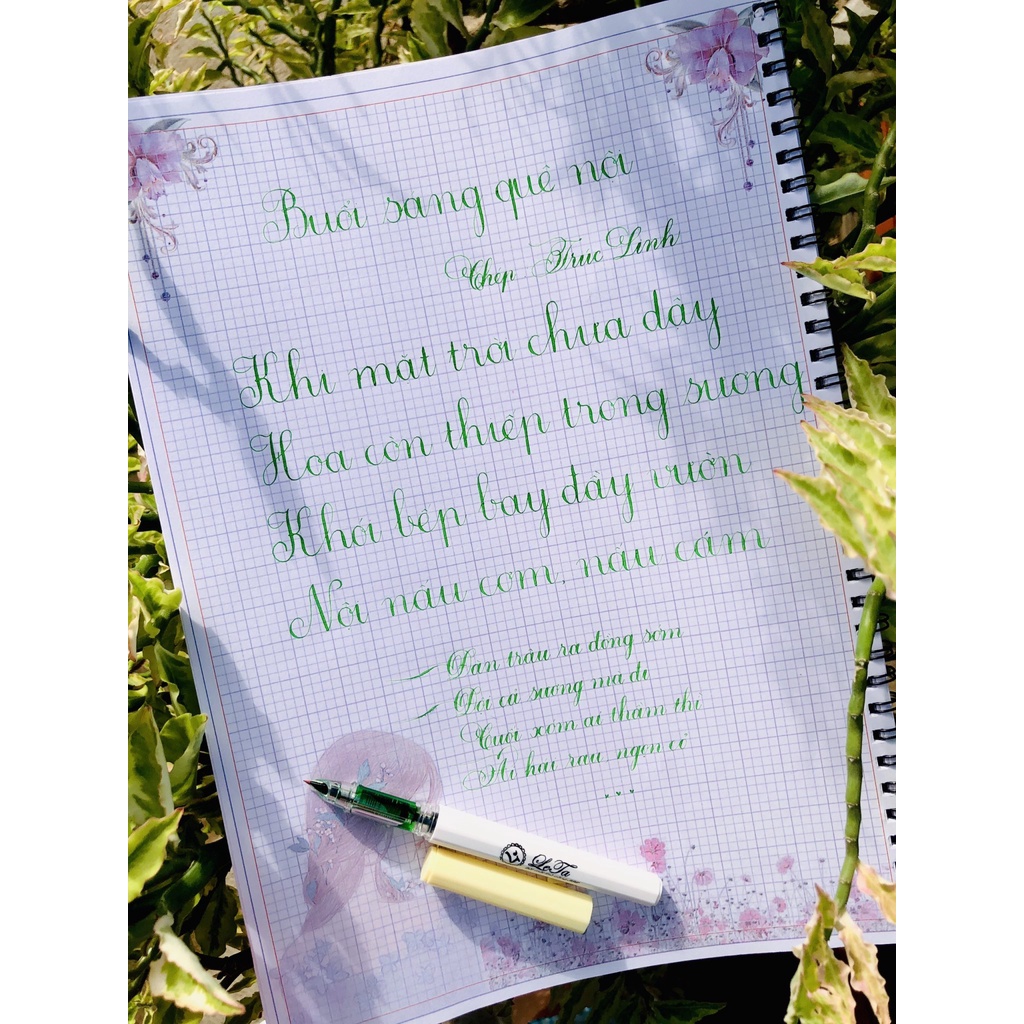 Buổi sáng quê nội
Chép Trúc Linh
Khi mặt trời chưa dậy
Hoa còn thiếp trong sương
Khói bếp bay đầy vườn
Nội nấu cơm, nấu cám
Đàn trâu ra đồng sớm
Đội cả sương mà đi
Cuối xóm ai thầm thì
Hái rau ngọn
...
LeTa